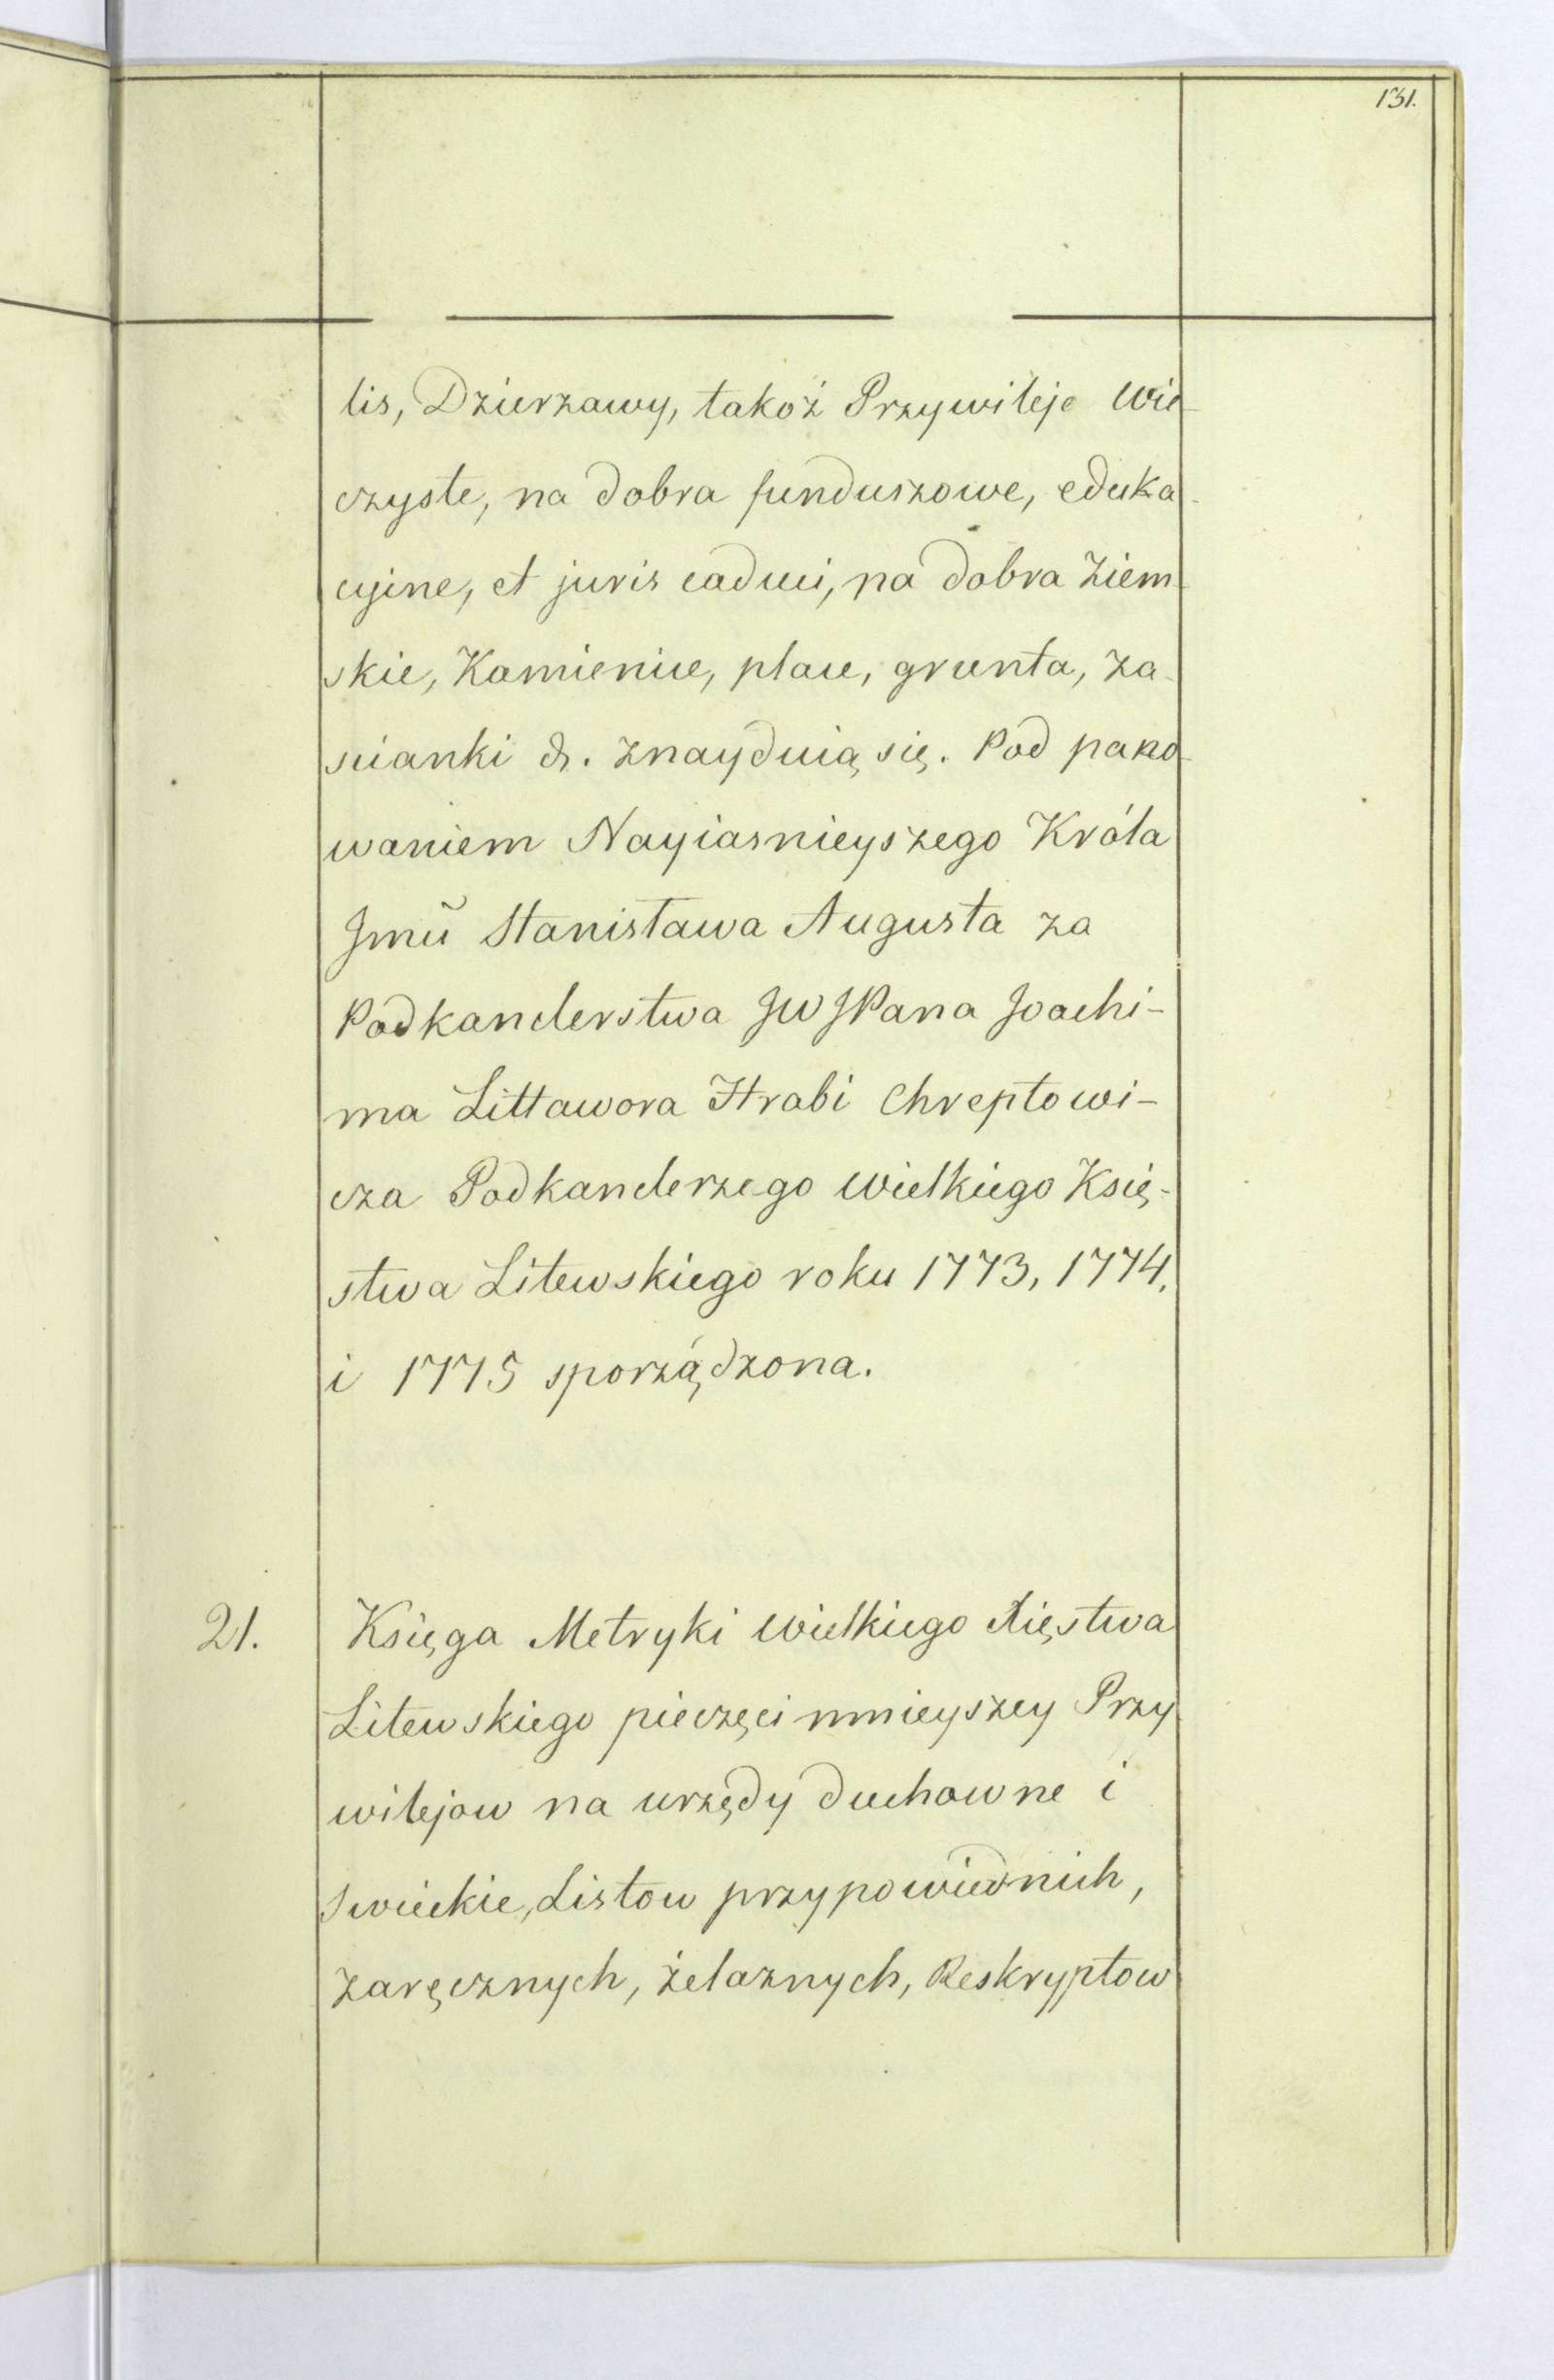 131.
lis, Dzierzawy, takoż Przywileje Wie-
czyste, na dobra funduszowe, eduka-
cyine, et juris caduci, na dobra Ziem-
skie, Kamienice, place, grunta, za-
scianki &. znayduią się. Pod pano-
waniem Nayiasnieyszego Króla
Jmũ Stanisława Augusta za
Podkanclerstwa JW JPana Joachi-
ma Littawora Hrabi Chreptowi-
cza Podkanclerzego Wielkiego Księ-
stwa Litewskiego roku 1773, 1774,
i 1775 sporządzona.
21. Księga Metryki Wielkiego Xięstwa
Litewskiego pieczęci mnieyszey Przy
wilejow na urzędy duchowne i
Swieckie, Listow przypowiednich,
zaręcznych, żelaznych, Reskryptow